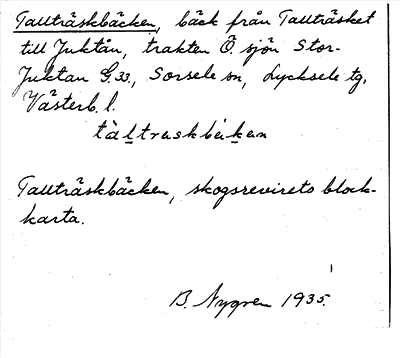 Tallträskbäcken, bäck från Tallträsket
till Juktån, trakten Ö. sjön Stor-
Juktan G.33., Sorsele sn, Lycksele tg,
Västerb. l.
tàltraskbäkan
Tallträskbäcken, skogsrevirets block-
karta.
B. Nygren 1935.